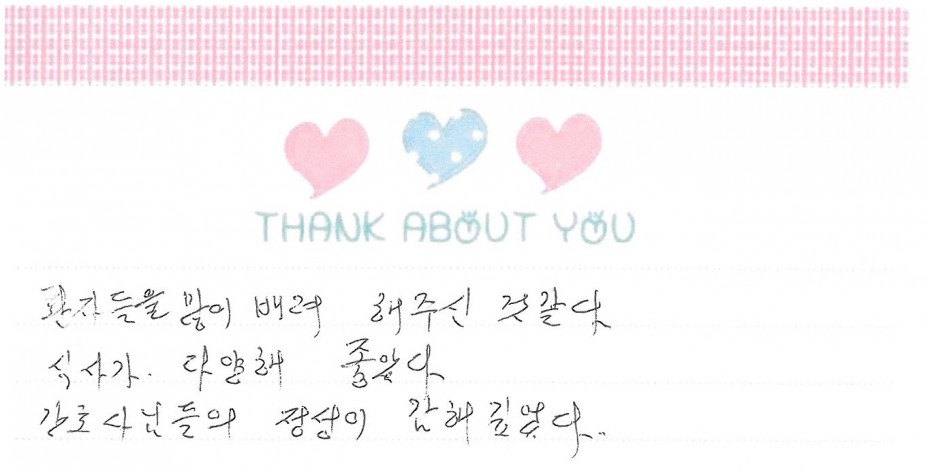 THANK ABOUT YOU
환자들을 많이 배려 해주신 것같다
식사가. 다양해 좋았다
간호사님들의 정성이 감해 깊었다..